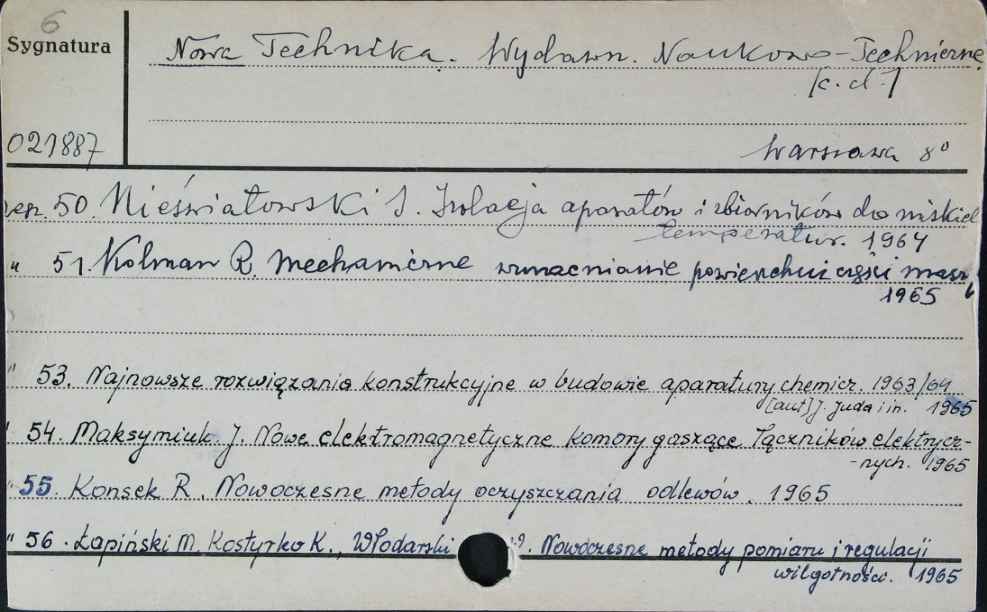 6
Sygnatura
Nowa Technika. Wydawn. Naukowo-Techniczne
[c.d.]
021887
Warszawa 8°
zesz. 50. Nieświatowski J. Izolacja aparatów i zbiorników do niskich
temperatur. 1964
" 51. Kolman R. Mechaniczne wzmacnianie powierzchni części masz.
1965
" 53. Najnowsze rozwiązania konstrukcyjne w budowie aparatury chemicz. 1963/64
[aut] J. Juda i in. 1965
" 54. Maksymiuk J. Nowe elektromagnetyczne komory gaszące łączników elektrycz-
-nych. 1965
" 55. Konsek R. Nowoczesne metody oczyszczania odlewów. 1965
" 56. Łapiński M. Kostyrko K., Włodarski Nowoczesne metody pomiaru i regulacji
wilgotności. 1965